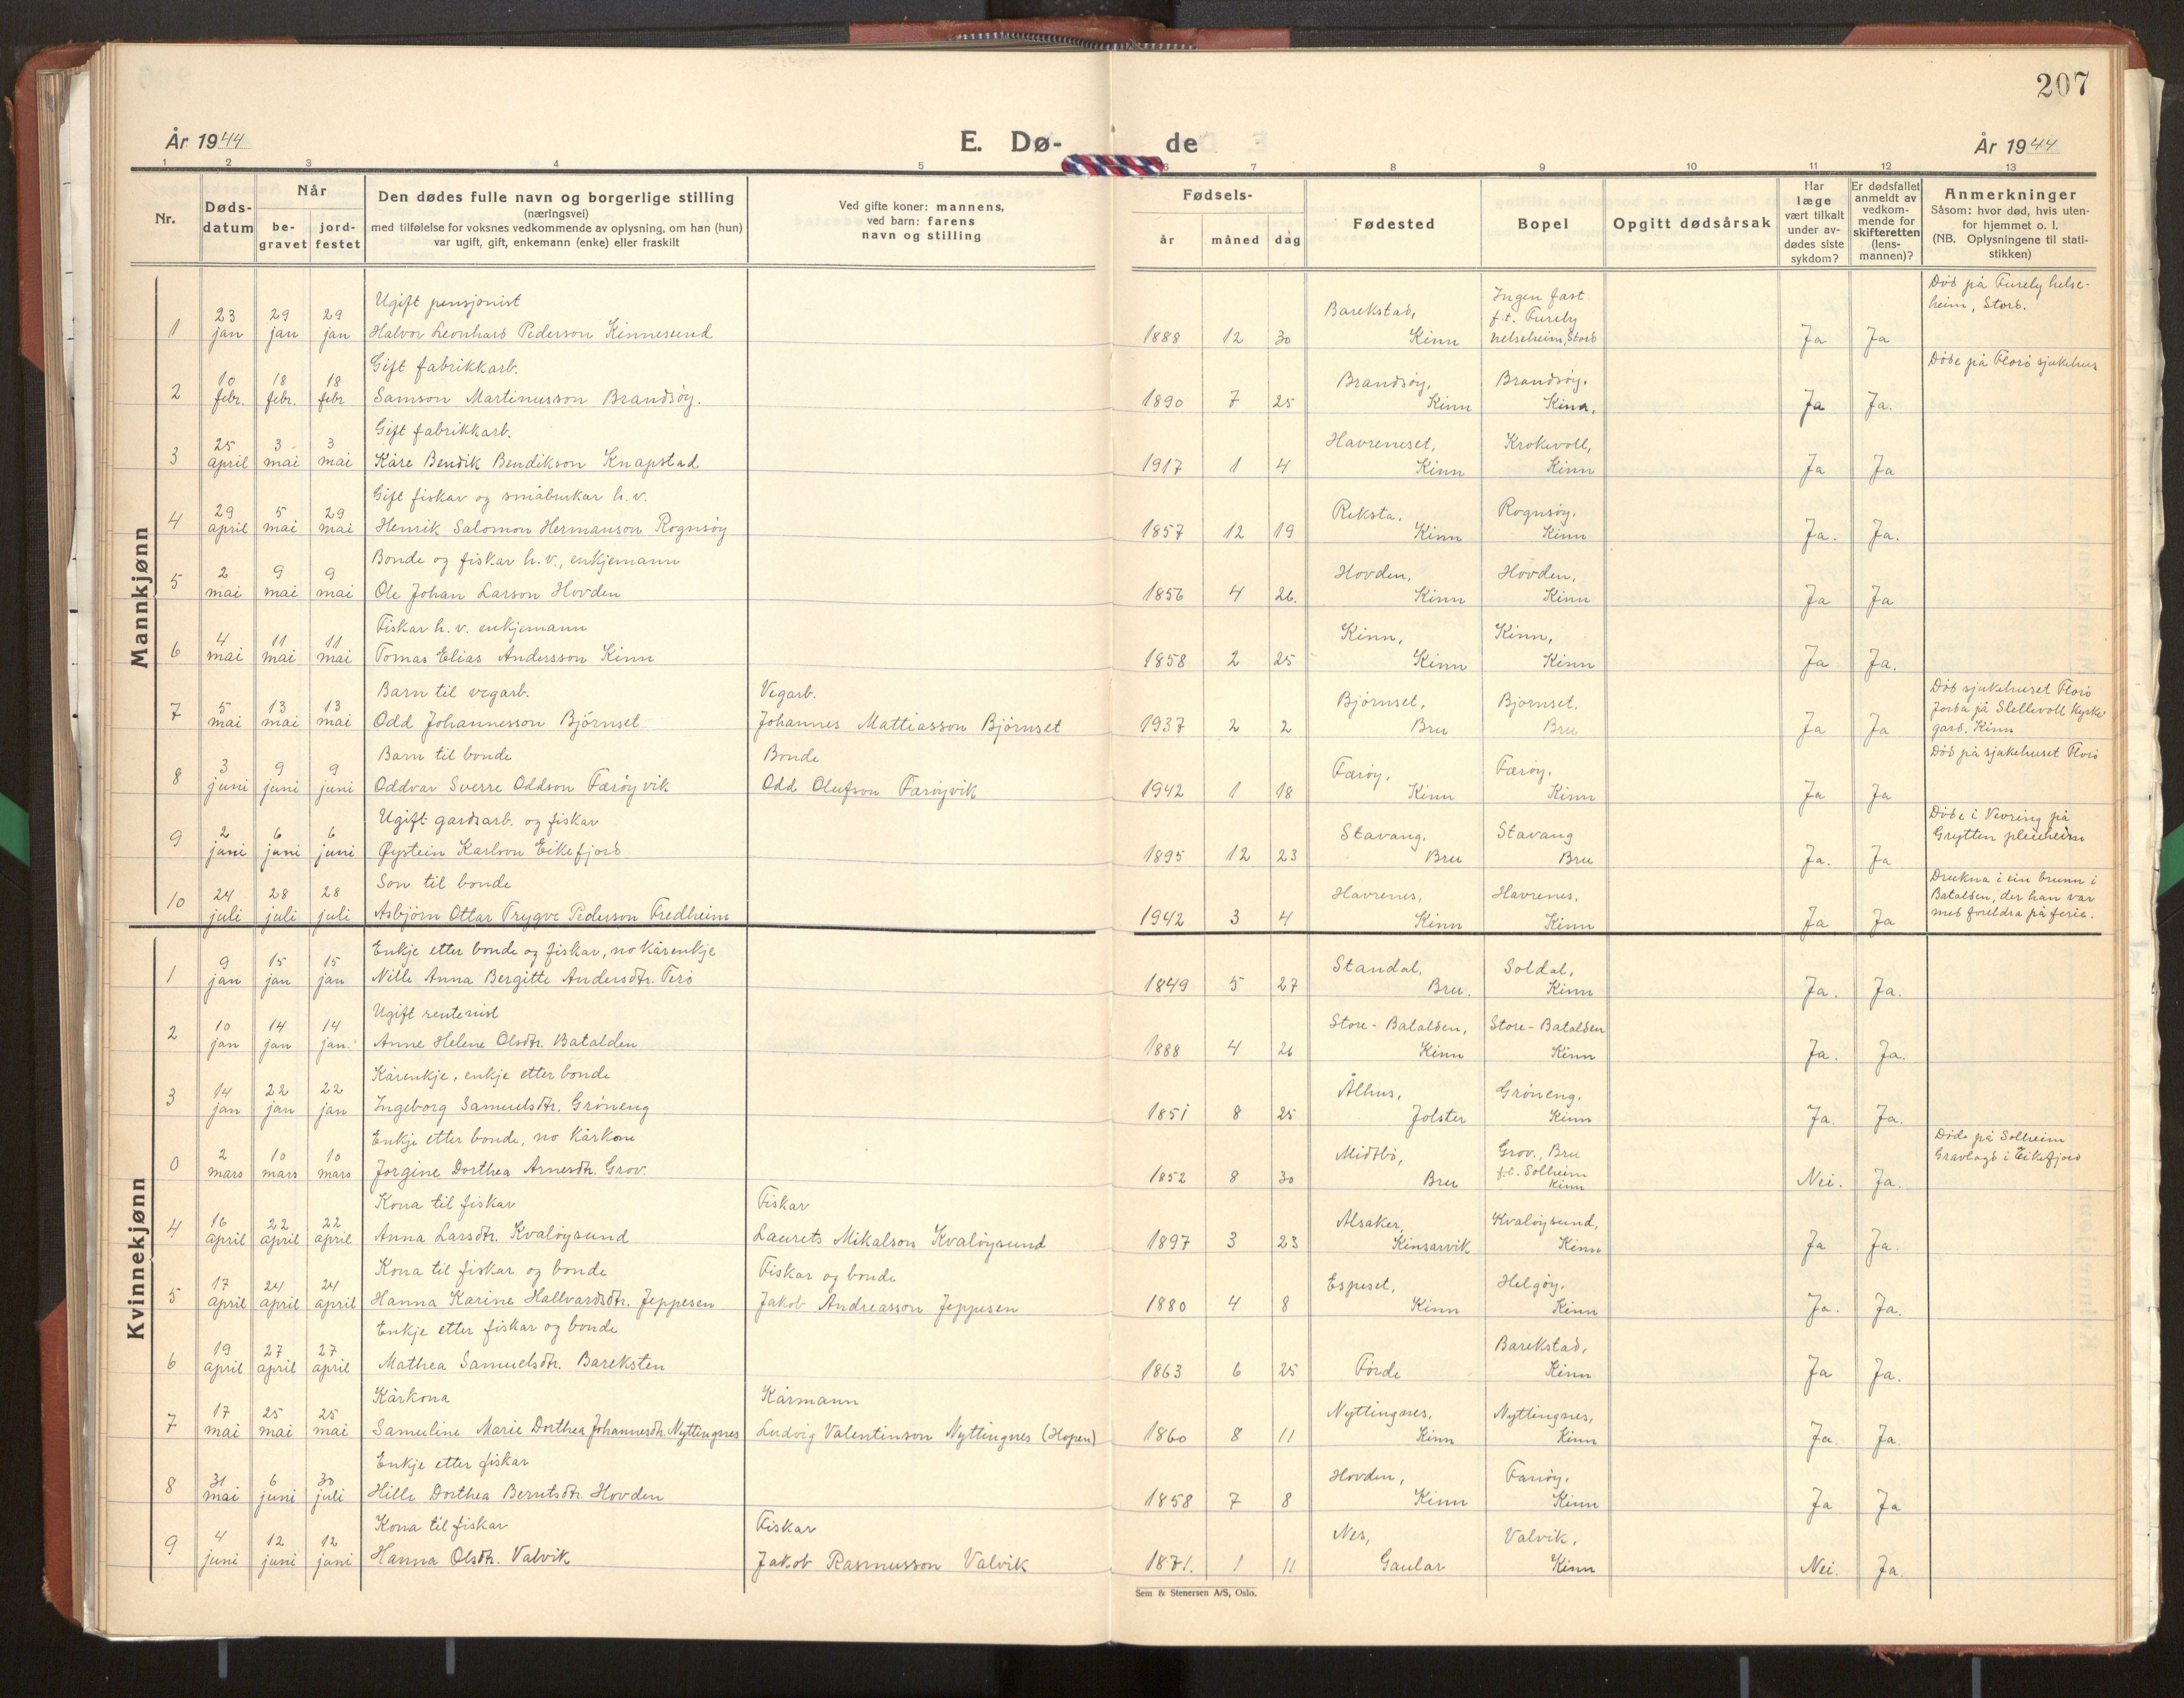 207
År 1944
E. Dø-
de
År 1944
1 2 3 4 5 6 7 8 9 10 11 12 13
Nr.
Døds-
datum
Når
be-
gravet
jord-
festet
Den dødes fulle navn og borgerlige stilling
(næringsvei)
med tilføielse for voksnes vedkommende av oplysning, om han (hun)
var ugift, gift, enkemann (enke) eller fraskilt
Ved gifte koner: mannens,
ved barn: farens
navn og stilling
Fødsels-
år måned dag
Fødested
Bopel
Opgitt dødsårsak
Har
læge
vært tilkalt
under av-
dødes siste
sykdom?
Er dødsfallet
anmeldt av
vedkom-
mende for
skifteretten
(lens-
mannen)?
Anmerkninger
Såsom: hvor død, hvis uten-
for hjemmet o. l.
(NB. Oplysningene til stati-
stikken)
Mannkjønn
Ugift pensjonist
1 23 jan 29 jan 29 jan Halvor Leonhard Pederson Kinnesund
1888 12 30 Barekstad, Kinn
Ingen fast
f.t. Furely
helseheim, Stord
Ja Ja
Død på Furely helse-
heim, Stord.
Gift fabrikkarb.
2 10 febr. 18 febr. 18 febr Samson Martinusson Brandsøy.
1890 7 25 Brandsøy, Kinn Brandsøy. Kinn, Ja Ja.
Døde på Florø sjukehus
Gift fabrikkarb.
3 25 april 3 mai 3 mai Kåre Bendik Bendikson Knapstad
1917 1 4 Havreneset, Kinn Krokevoll, Kinn Ja Ja
Gift fiskar og småbrukar h.v.
4 29 april 5 mai 29 mai Henrik Salomon Hermanson Rognsøy
1857 12 19 Reksta, Kinn Rognsøy. Kinn Ja. Ja.
Bonde og fiskar h.v., enkjemann
5 2 mai 9 mai 9 mai Ole Johan Larson Hovden
1856 4 26. Hovden, Kinn Hovden, Kinn Ja Ja
Fiskar h.v. enkjemann
6 4 mai 11 mai 11 mai Tomas Elias Andersson Kinn
1858 2 25 Kinn, Kinn Kinn, Kinn Ja Ja.
Barn til vegarb. Vegarb.
7 5 mai 13 mai 13 mai Odd Johannesson Bjørnset Johannes Mattiasson Bjørnset
1937 2 2 Bjørnset, Bru Bjørnset. Bru Ja Ja
Død sjukehuset Florø
Jorda på Stellevoll kyrke
gard. Kinn
Barn til bonde Bonde
8 3 juni 9 juni 9 juni Oddvar Sverre Oddson Færøyvik Odd Olufson Færøyvik
1942 1 18 Færøy. Kinn Færøy. Kinn Ja Ja
Død på sjukehuset Florø
Ugift gardsarb. og fiskar
9 2 juni 6 juni 6 juni Øystein Karlson Eikefjord
1895 12 23 Stavang. Bru Stavang Bru Ja. Ja
Døde i Vevring på
Grytten pleieheim
Son til bonde
10 24 juli 28 juli 28 juli Asbjørn Ottar Trygve Pederson Fredheim
1942 3 4 Havrenes, Kinn Havrenes, Kinn Ja Ja
Drukna i ein brunn i
Batalden, der han var
med foreldra på ferie.
Kvinnekjønn
Enkje etter bonde og fiskar, no kårenkje
1 9 jan 15 jan 15 jan Nille Anna Bergitte Andersdtr. Terø
1849 5 27 Standal, Bru. Soldal, Kinn Ja. Ja.
Ugift rentenist
2 10 jan 14 jan 14 jan. Anne Helene Olsdtr. Batalden
1888 4 26 Store-Batalden, Kinn Store-Batalden Kinn Ja. Ja.
Kårenkje, enkje etter bonde
3 14 jan 22 jan 22 jan Ingeborg Samuelsdtr. Grøneng
1851 8 25 Ålhus, Jølster Grøneng. Kinn Ja. Ja.
Enkje etter bonde, no kårkone
0 2 mars 10 mars 10 mars Jorgine Dorthea Arnesdtr. Grov.
1852 8 30 Midtbø, Bru
Grov., Bru
f.t. Solheim
Kinn
Nei. Ja.
Døde på Solheim
Gravlagd i Eikefjord
Kona til fiskar Fiskar
4 16 april 22 april 22 april Anna Larsdtr. Kvaløysund Laurets Mikalson Kvaløysund
1897 3 23 Alsaker, Kinsarvik Kvaløysund, Kinn Ja Ja.
Kona til fiskar og bonde Fiskar og bonde
5 17 april 24 april 24 april Hanna Karine Hallvardsdtr. Jeppesen Jakob Andreasson Jeppesen
1880 4 8 Espeset, Kinn Helgøy. Kinn Ja. Ja.
Enkje etter fiskar og bonde
6 19 april 27 april 27 april Mathea Samuelsdtr. Bareksten
1863 6 25 Førde Barekstad, Kinn Ja Ja.
Kårkona Kårmann
7 17 mai 25 mai 25 mai Samuline Marie Dorthea Johannesdtr. Nyttingnes Ludvig Valentinson Nyttingnes (Hopen)
1860 8 11 Nyttingnes, Kinn Nyttingnes, Kinn Ja. Ja.
Enkje etter fiskar
8 31 mai 6 juni 30 juli Hille Dorthea Berntsdtr. Hovden
1858 7 8 Hovden, Kinn Fanøy. Kinn Ja Ja
Kona til fiskar Fiskar
9 4 juni 12 juni 12 juni Hanna Olsdtr. Valvik Jakob Rasmusson Valvik
1871. 1 11 Nes, Gaular Valvik, Kinn Nei. Ja.
Sem & Stenersen A/S, Oslo.